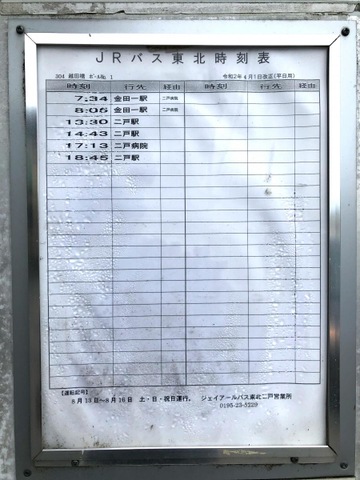 JRバス東北時刻表
304 ポールNo. 1 令和2年4月1日改正(平日用)
時刻 行先 経由 時刻 行先 経由
7:34 金田一駅 二戸病院
8:05 金田一駅 二戸病院
13:30 二戸駅
14:43 二戸駅
17:13 二戸病院
18:45 二戸駅
【運転記号】
8月13日〜8月16日 土・日・祝日運行。 ジェイアールバス東北二戸営業所
0195-23-5229